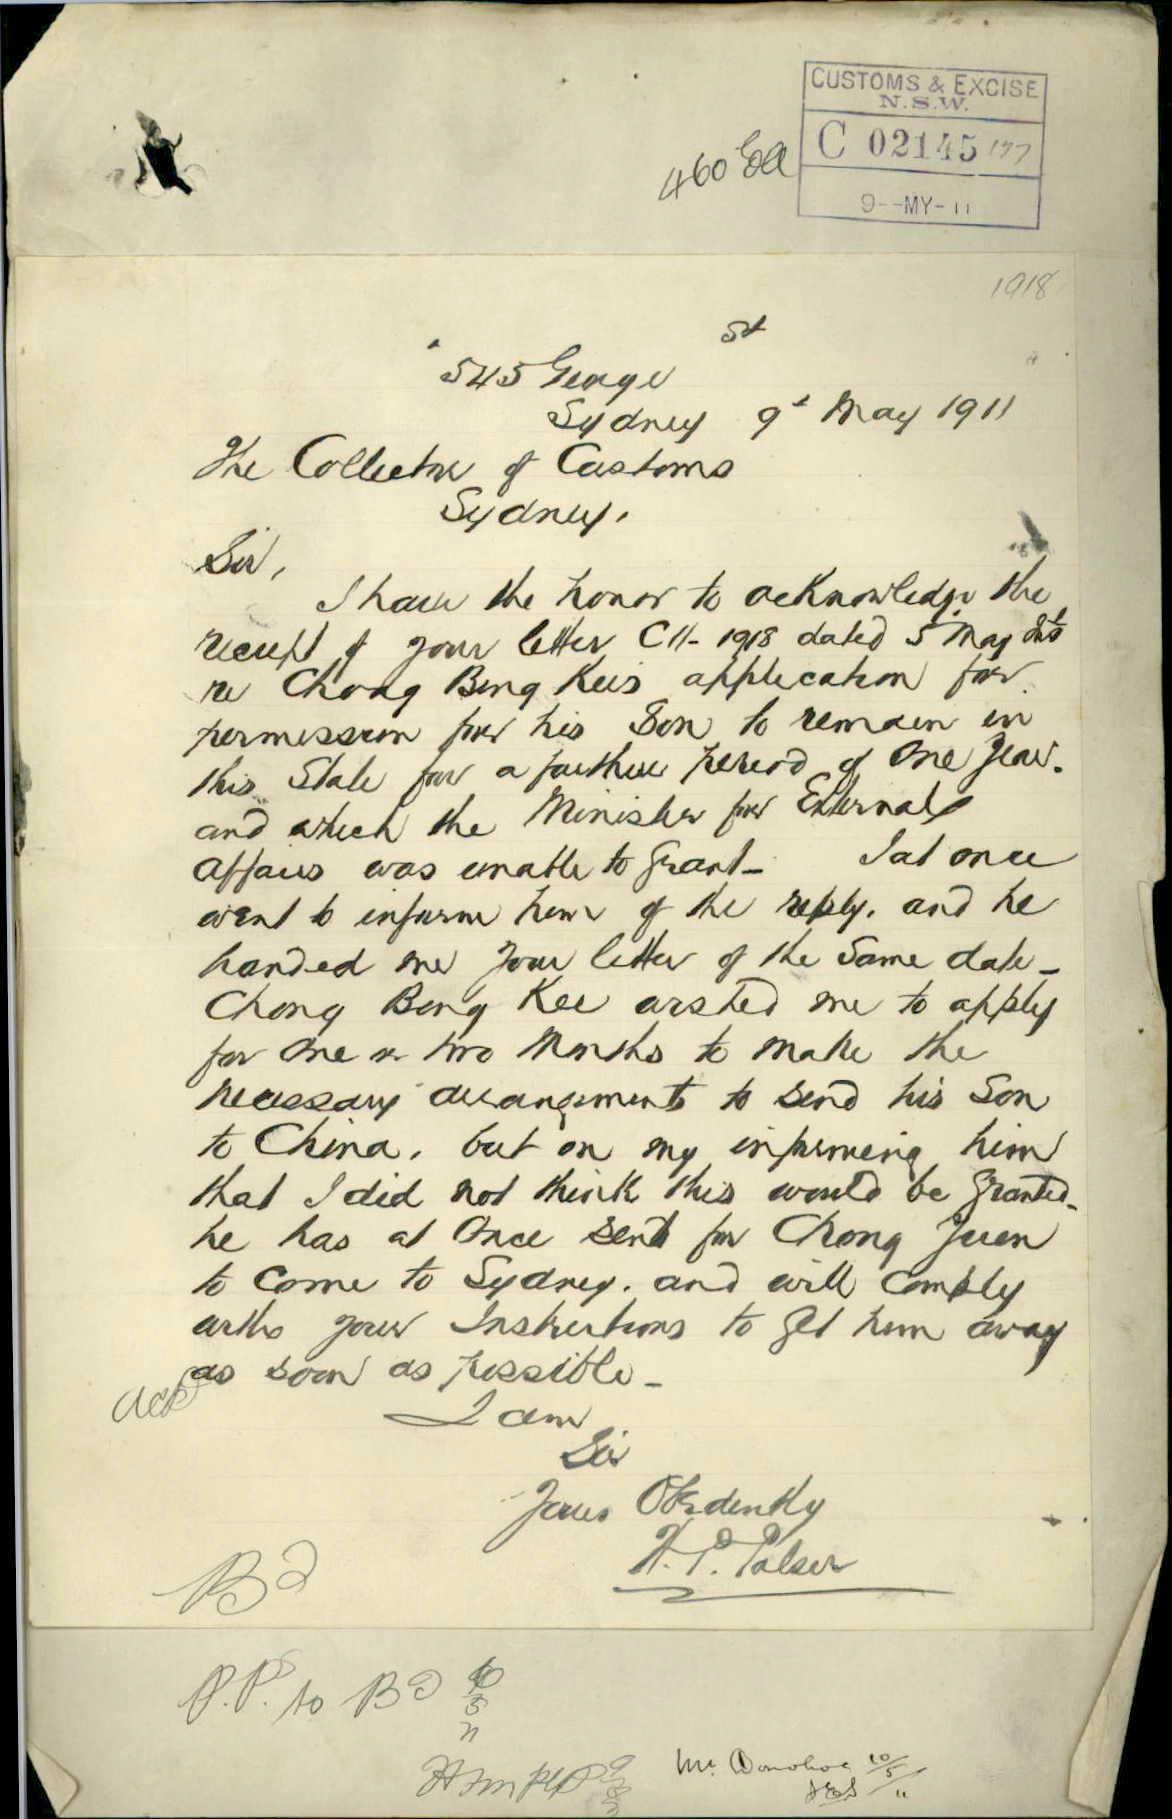 CUSTOMS & EXCISE
N.S.W.
C 02145
9--MY-11
460
1918
545 George St
Sydney 9th May 1911
The Collector of Customs
Sydney.
Sir,
I have the honor to acknowledge the
receipt of your letter C11-1918 dated 5th May Inst
re Chong Bing Kee's application for
permission for his Son to remain in
this State for a further period of One Year.
and which the Minister for External
Affairs was unable to Grant- I at once
went to inform him of the reply. and he
handed me your letter of the Same date-
Chong Bong Kee arsked me to apply
for One or two Months to make the
necessary arrangements to send his Son
to China. but on my informing him
that I did not think this would be Granted-
he has at Once sent for Chong Yuen
to Come to Sydney. and will Comply
with your Instructions to Get him away
as soon as possible-
I am
Sir
Yours Obediently
H. P. Palser
P.P. to BD 10/5/11
Mr. Donohoe 10/5/11